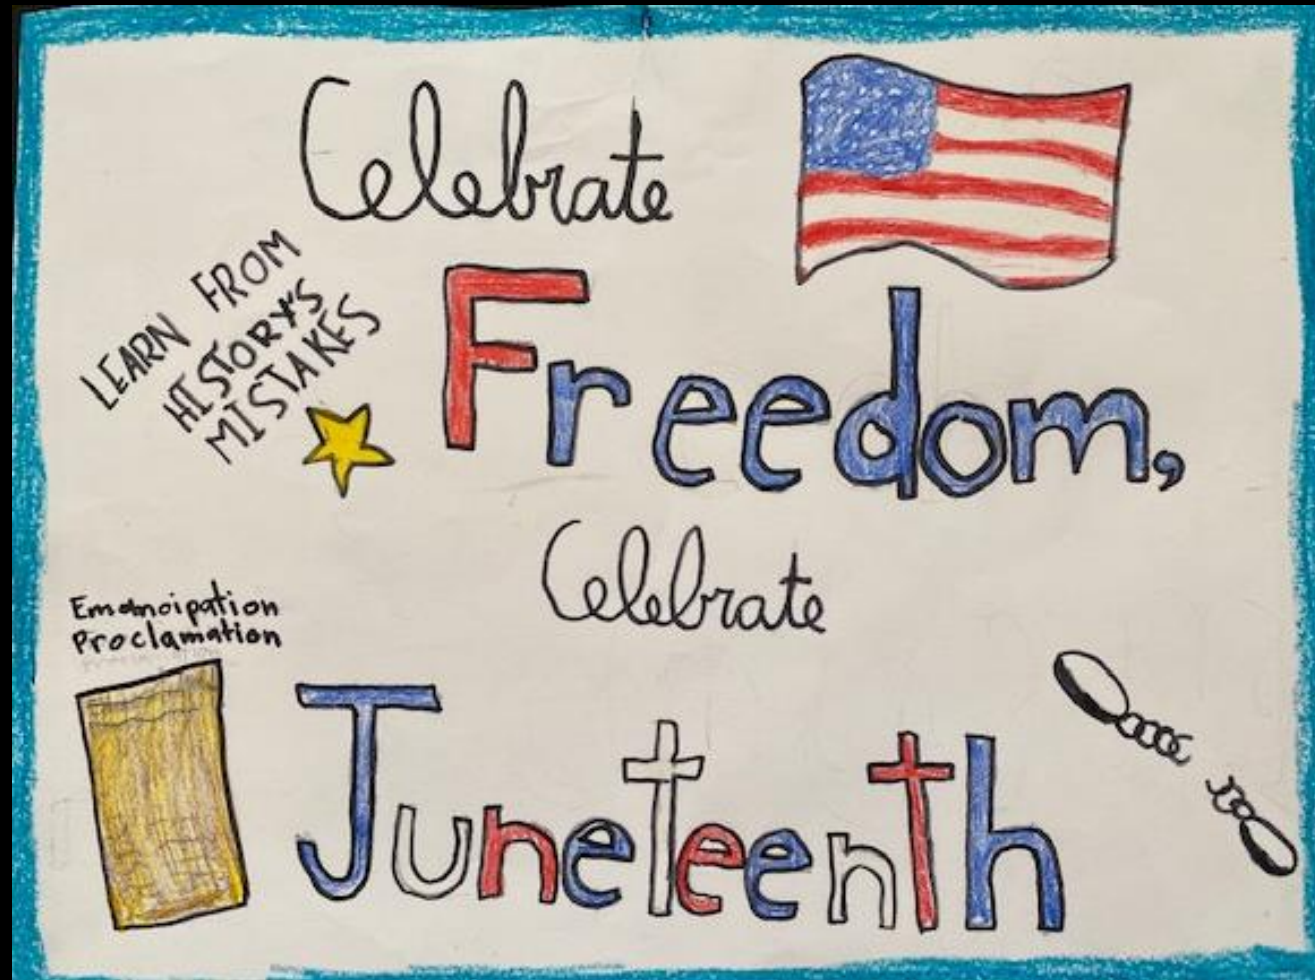 Celebrate
LEARN FROM
HISTORY'S
MISTAKES
Freedom,
Celebrate
Emancipation
Proclamation
Juneteenth